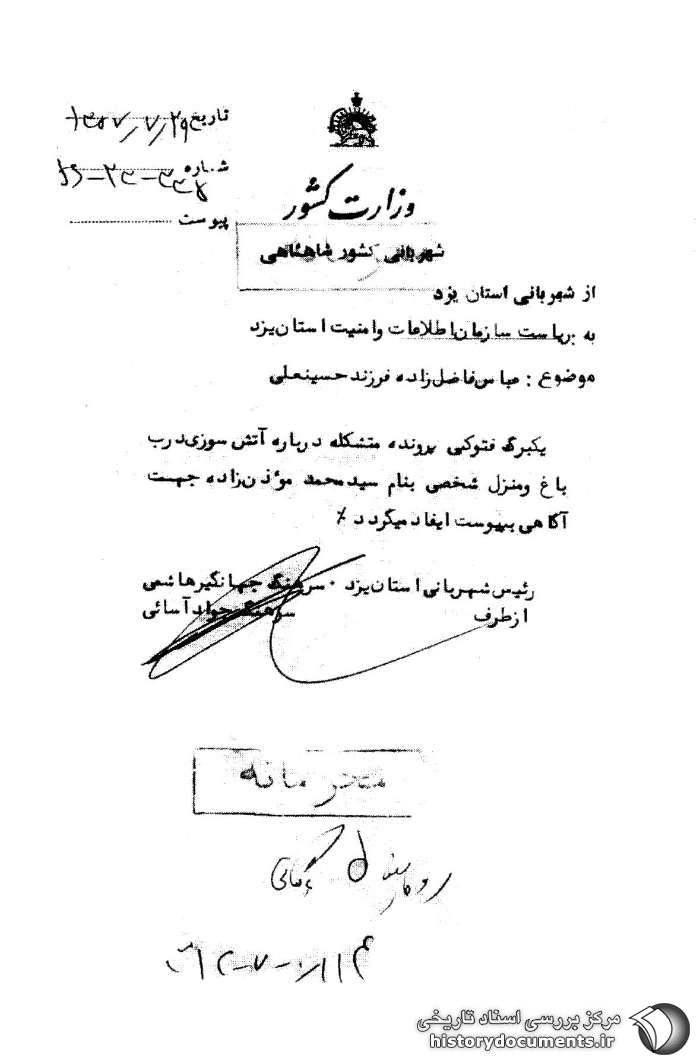 تاریخ ۱۳۵۷/۷/۲۹
شماره
پیوست
وزارت کشور
شهربانی کشور شاهنشاهی
از شهربانی استان یزد
به ریاست سازمان اطلاعات وامنیت استان یزد
موضوع : عباس فاضل زاده فرزند حسینعلی
یکبرگ فتوکپی پرونده متشکله درباره آتش سوزی درب
باغ ومنزل شخصی بنام سیدمحمد مؤذن زاده جهت
آگاهی بپیوست ایفاد میگردد ٪
رئیس شهربانی استان یزد ۰ سرهنگ جهانگیر هاشمی
ازطرف سرهنگ جواد آسائی
محرمانه
مرکز بررسی اسناد تاریخی
historydocuments.ir